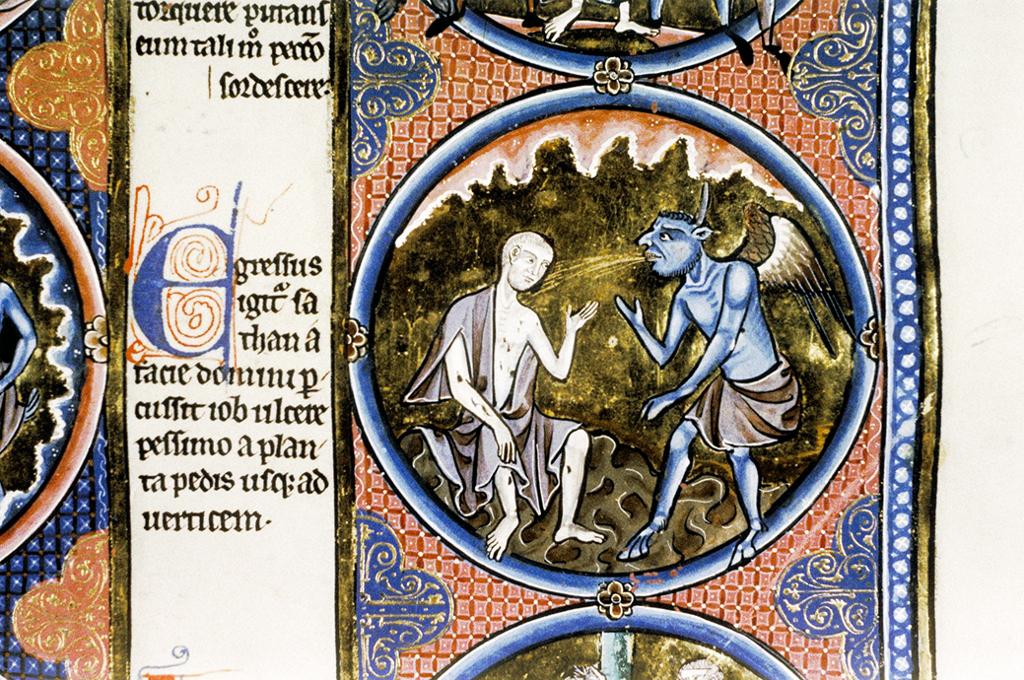 torquere putans
eum tali mº pccō
sordescere.
Egressus
igitᵃ sa
than a
facie domini p̄
cussit iob ulcere
pessimo a plan-
ta pedis usq; ad
uerticem.